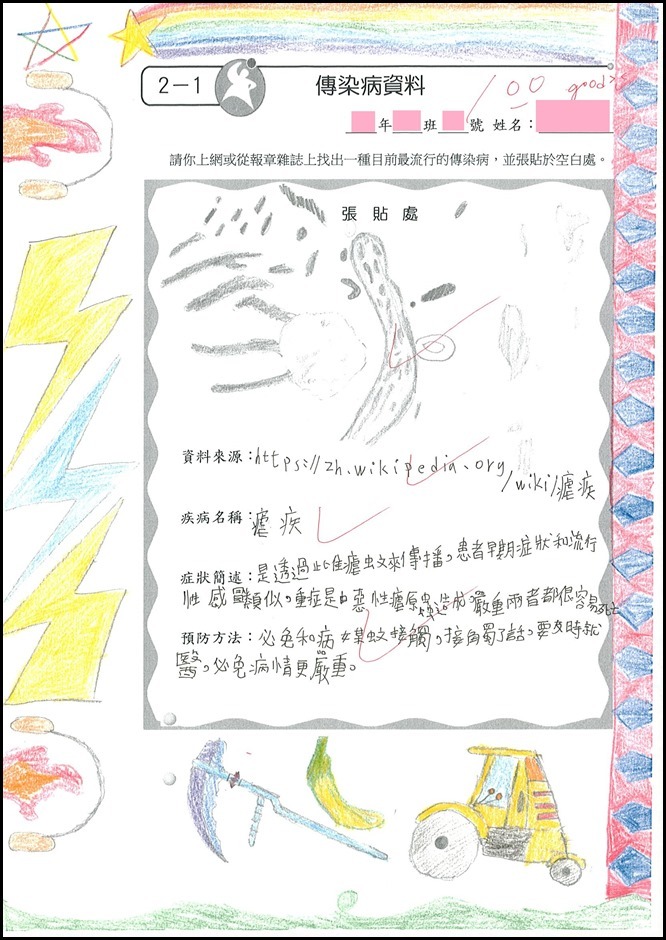 2－1
傳染病資料
100 good
年 班 號 姓名：
請你上網或從報章雜誌上找出一種目前最流行的傳染病，並張貼於空白處。
張貼處
資料來源：https://zh.wikipedia.org
/wiki/瘧疾
疾病名稱：瘧疾
症狀簡述：是透過 瘧蚊來傳播。患者早期症狀和流行
性感 類似。重症是由惡性瘧原蟲造成嚴重兩者都很容易死亡
預防方法：必免和病 蚊接觸。接觸了話。要及時就
醫。必免病情更嚴重。